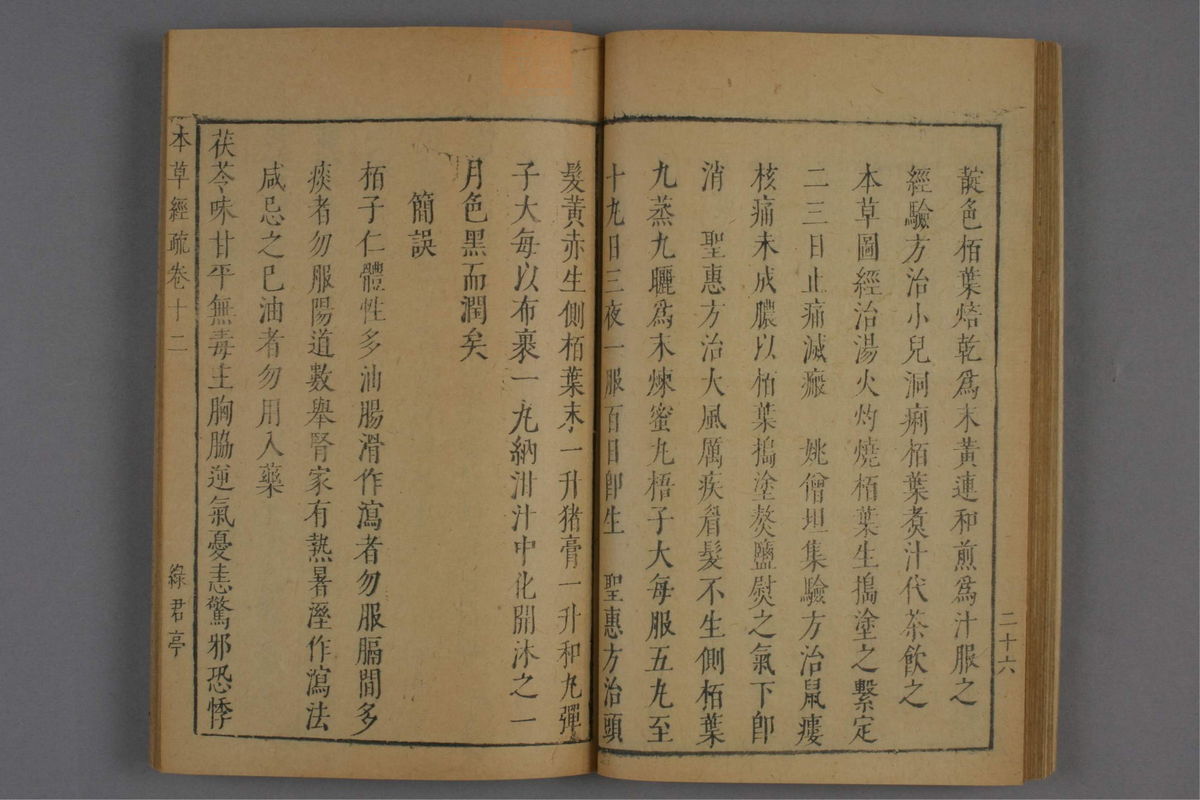 二十六
靛色栢葉焙乾爲末黃連和煎爲汁服之
經驗方治小兒洞痢栢葉煑汁代茶飲之
本草圖經治湯火灼燒栢葉生搗塗之繫定
二三日止痛滅瘢　姚僧坦集驗方治鼠瘻
核痛未成膿以栢葉搗塗熬鹽熨之氣下卽
消　聖惠方治大風厲疾眉髮不生側栢葉
九蒸九曬爲末煉蜜丸梧子大每服五丸至
十丸日三夜一服百日卽生　聖惠方治頭
髮黃赤生側栢葉末一升猪膏一升和丸彈
子大每以布裹一丸納泔汁中化開沐之一
月色黑而潤矣
簡誤
栢子仁體性多油腸滑作瀉者勿服膈間多
痰者勿服陽道數舉腎家有熱暑溼作瀉法
咸忌之已油者勿用入藥
茯苓味甘平無毒主胸脇逆氣憂恚驚邪恐悸
本草經疏卷十二
綠君亭